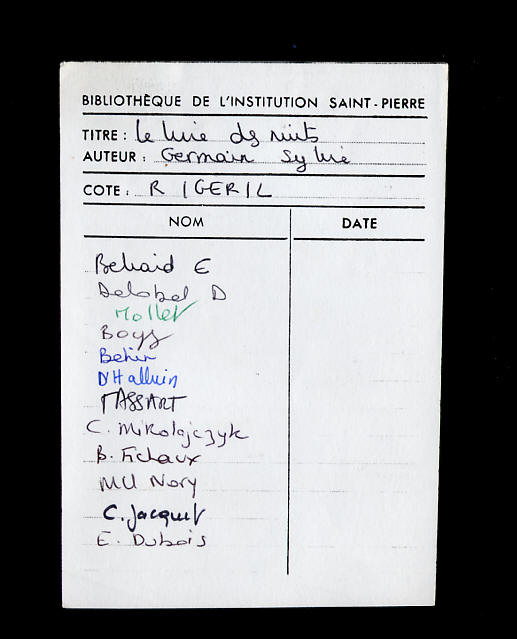 BIBLIOTHÈQUE DE L'INSTITUTION SAINT-PIERRE
TITRE : Le livre des nuits
AUTEUR : Germain Sylvie
COTE : R / GER / L
NOM DATE
Behaid E
Delobel D
Mollet
Boys
Betin
D'Halluin
MASSART
C. Mikolajczyk
B. Fichaux
MU Nory
C. Jacquet
E. Dubois